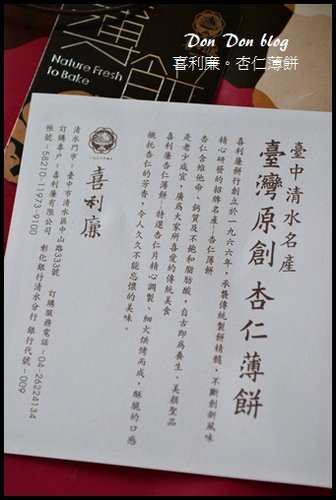 Don Don blog
喜利廉。杏仁薄餅
薄餅
Nature Fresh
To Bake
臺中清水名產
臺灣原創 杏仁薄餅
喜利廉餅行創立於一九六六年，承襲傳統製餅精髓，不斷創新風味
精心研發的招牌名產—杏仁薄餅
杏仁含維他命、鈣質及不飽和脂肪酸，自古即為養生、美顏聖品
是老少咸宜，廣為大家所喜愛的傳統美食
喜利廉杏仁薄餅—特選杏仁片精心調製、細火烘烤而成，酥脆的口感
襯托杏仁的芳香，令人久久不能忘懷的美味。
喜利廉
清水門市：臺中市清水區中山路333號 訂購服務電話：04-26224134
訂購專戶：喜利廉有限公司 彰化銀行清水分行 銀行代號：009
帳號：58210-11973-9100